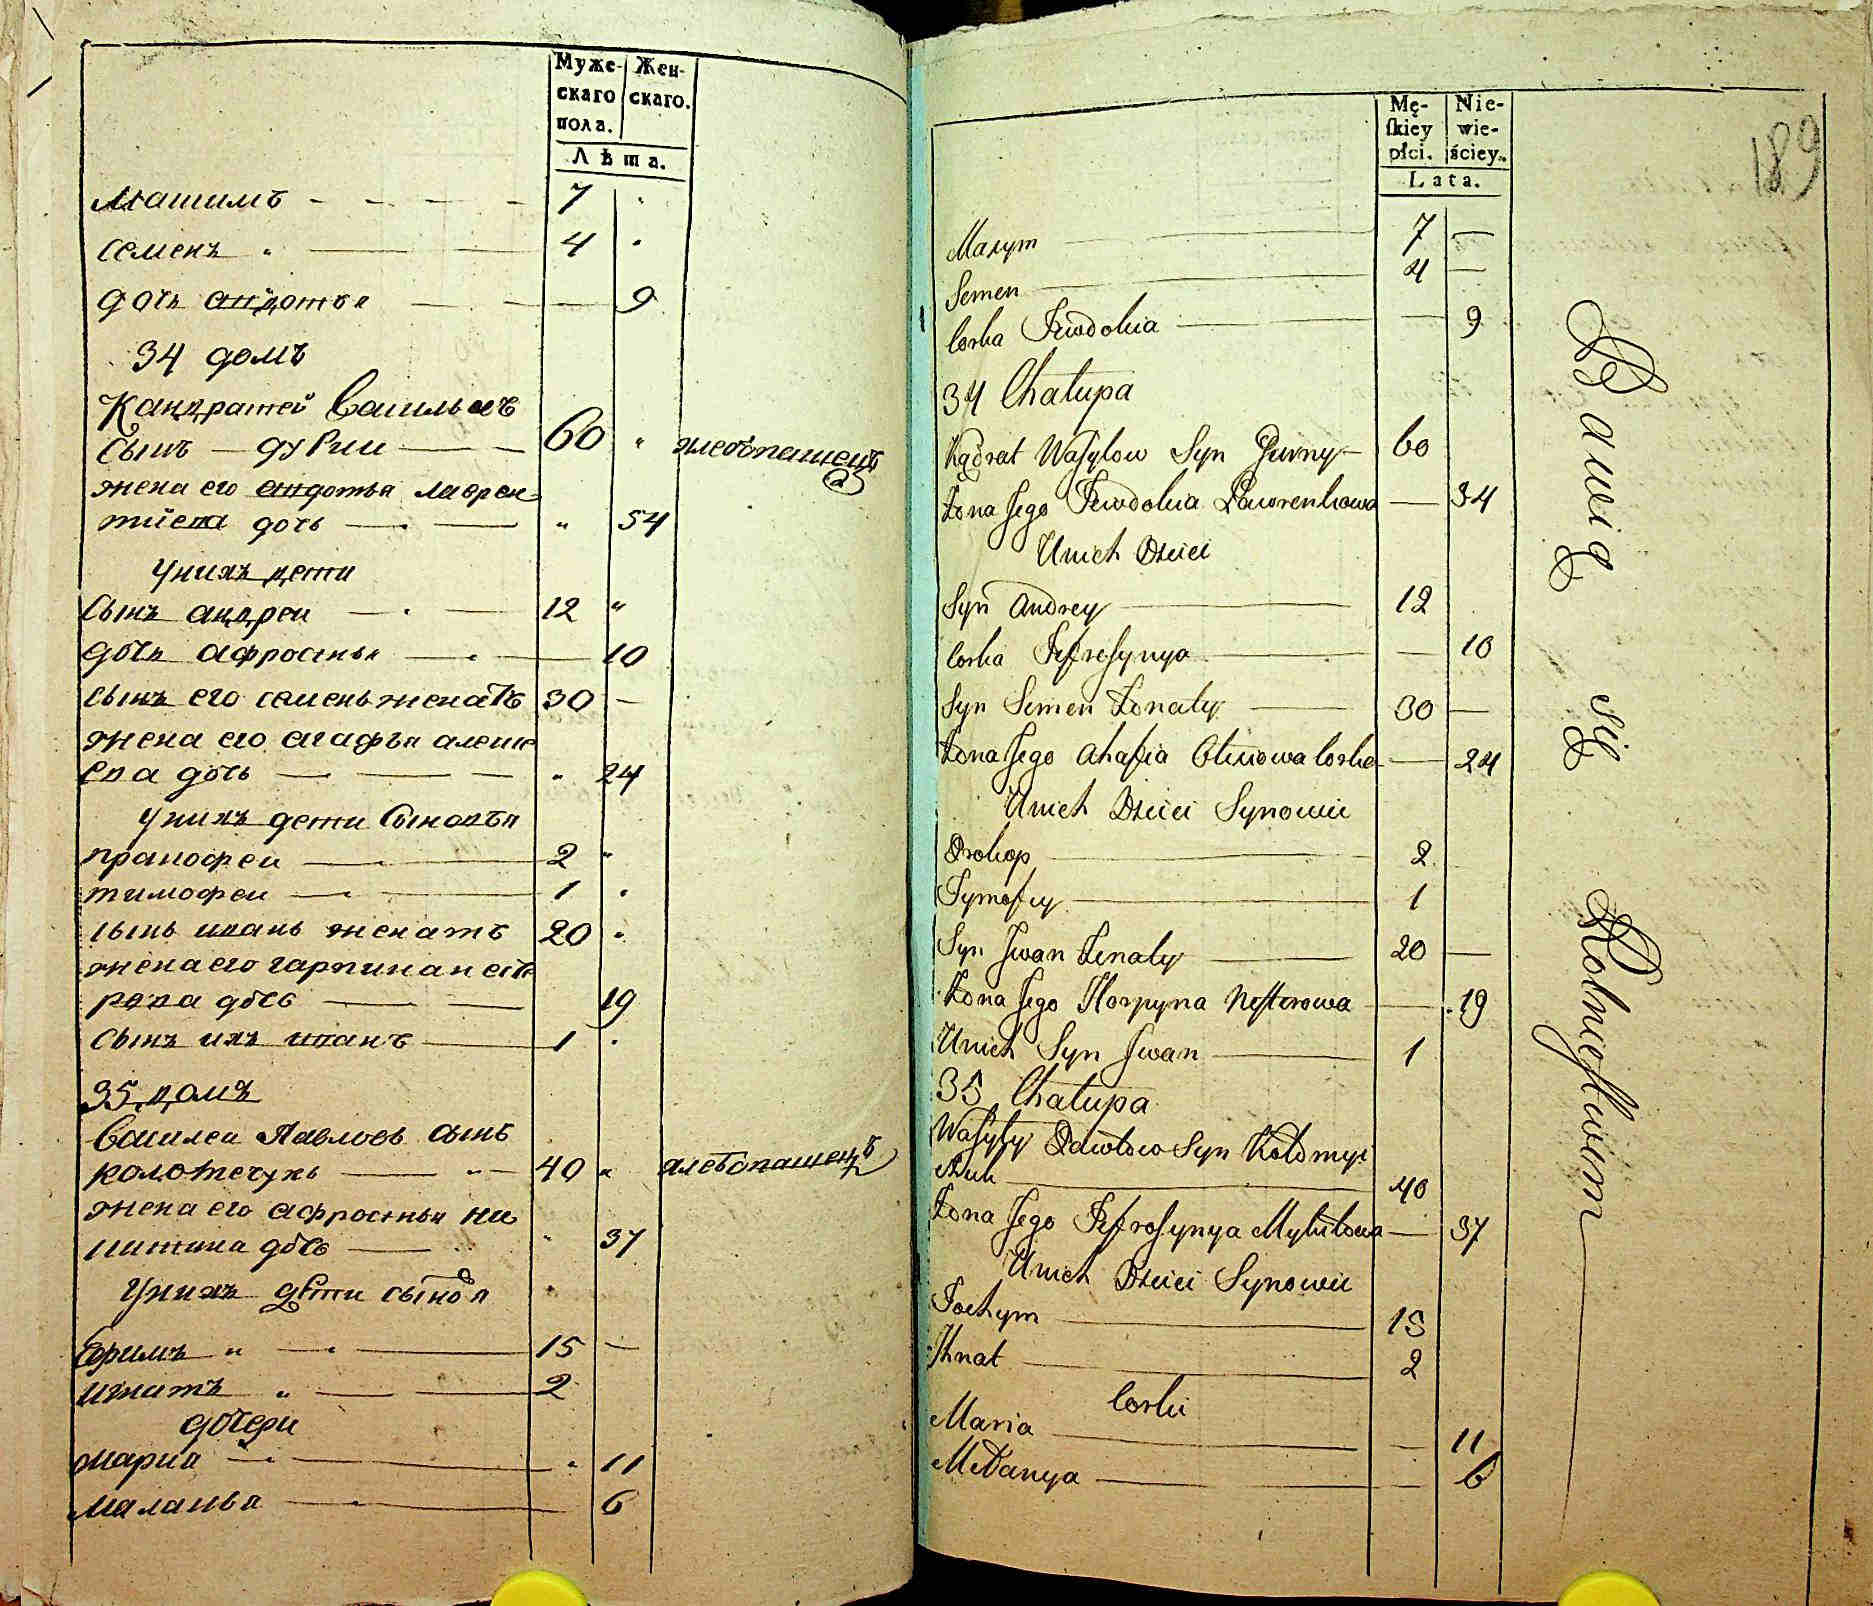 Муже-
скаго
пола.
Жен-
скаго.
Лѣта.
Машимъ 7
семенъ 4
дочь авдотья 9
34 домъ
Кандратей Васильевъ
сынъ 60 хлебопашецъ
жена его авдотья лаврен
тиева дочь 54
Унихъ дети
Сынъ андреи 12
дочь афросинья 10
сынъ его семенъ женатъ 30
жена его агафья алекше
ева дочь 24
Унихъ дети Сыновья
пракофеи 2
тимофеи 1
сынъ иванъ женатъ 20
жена его гарпина несте
рова дочь 19
сынъ ихъ иванъ 1
35 домъ
Василеи Павловъ сынъ
40 хлебопашецъ
жена его афросинья ни
китина дочь 37
Унихъ дѣти сынов
Ефимъ 15
игнатъ 2
дочери
мария 11
маланья 6
189
Mę-
skiey
płci.
Nie-
wie-
ściey.
Lata.
Maxym 7
Semen 4
Corka Fewdokia 9
34 Chałupa
Kądrat Wasylow Syn 60
Żona Jego Fewdokia Lawrenkowa 34
Unich Dzieci
Syn Andrey 12
Corka Fefrosynya 10
Syn Semen Żonaty 30
Żona Jego Ahafia Corka 24
Unich Dzieci Synowie
Prokop 2
Tymofey 1
Syn Jwan Żenaty 20
Żona Jego Horpyna Nesterowa 19
Unich Syn Jwan 1
35 Chałupa
Wasyly Pawłow Syn Kołomyi
czuk 40
Żona Jego Fefrosynya Mykitowa 37
Unich Dzieci Synowie
Jochym 15
Ihnat 2
Corki
Maria 11
Melanya 6
Bawią się Rolnictwem